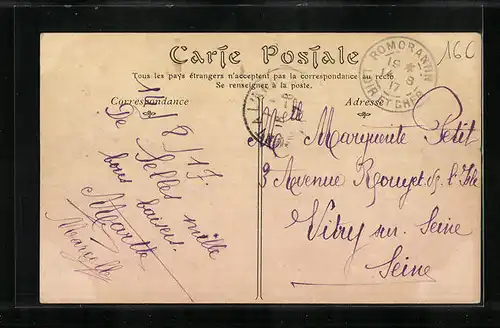 160
Carte Postale
Tous les pays étrangers n'acceptent pas la correspondance au recto.
Se renseigner à la poste.
Correspondance
Adresse
ROMORANTIN
LOIR-ET-CHER
8
17
/8/17
De Selles mille
bons baisers.
Marthe
Marcelle
Melle
Marguerite Petit
3 Avenue Rouget de l'Isle
Vitry sur Seine
Seine